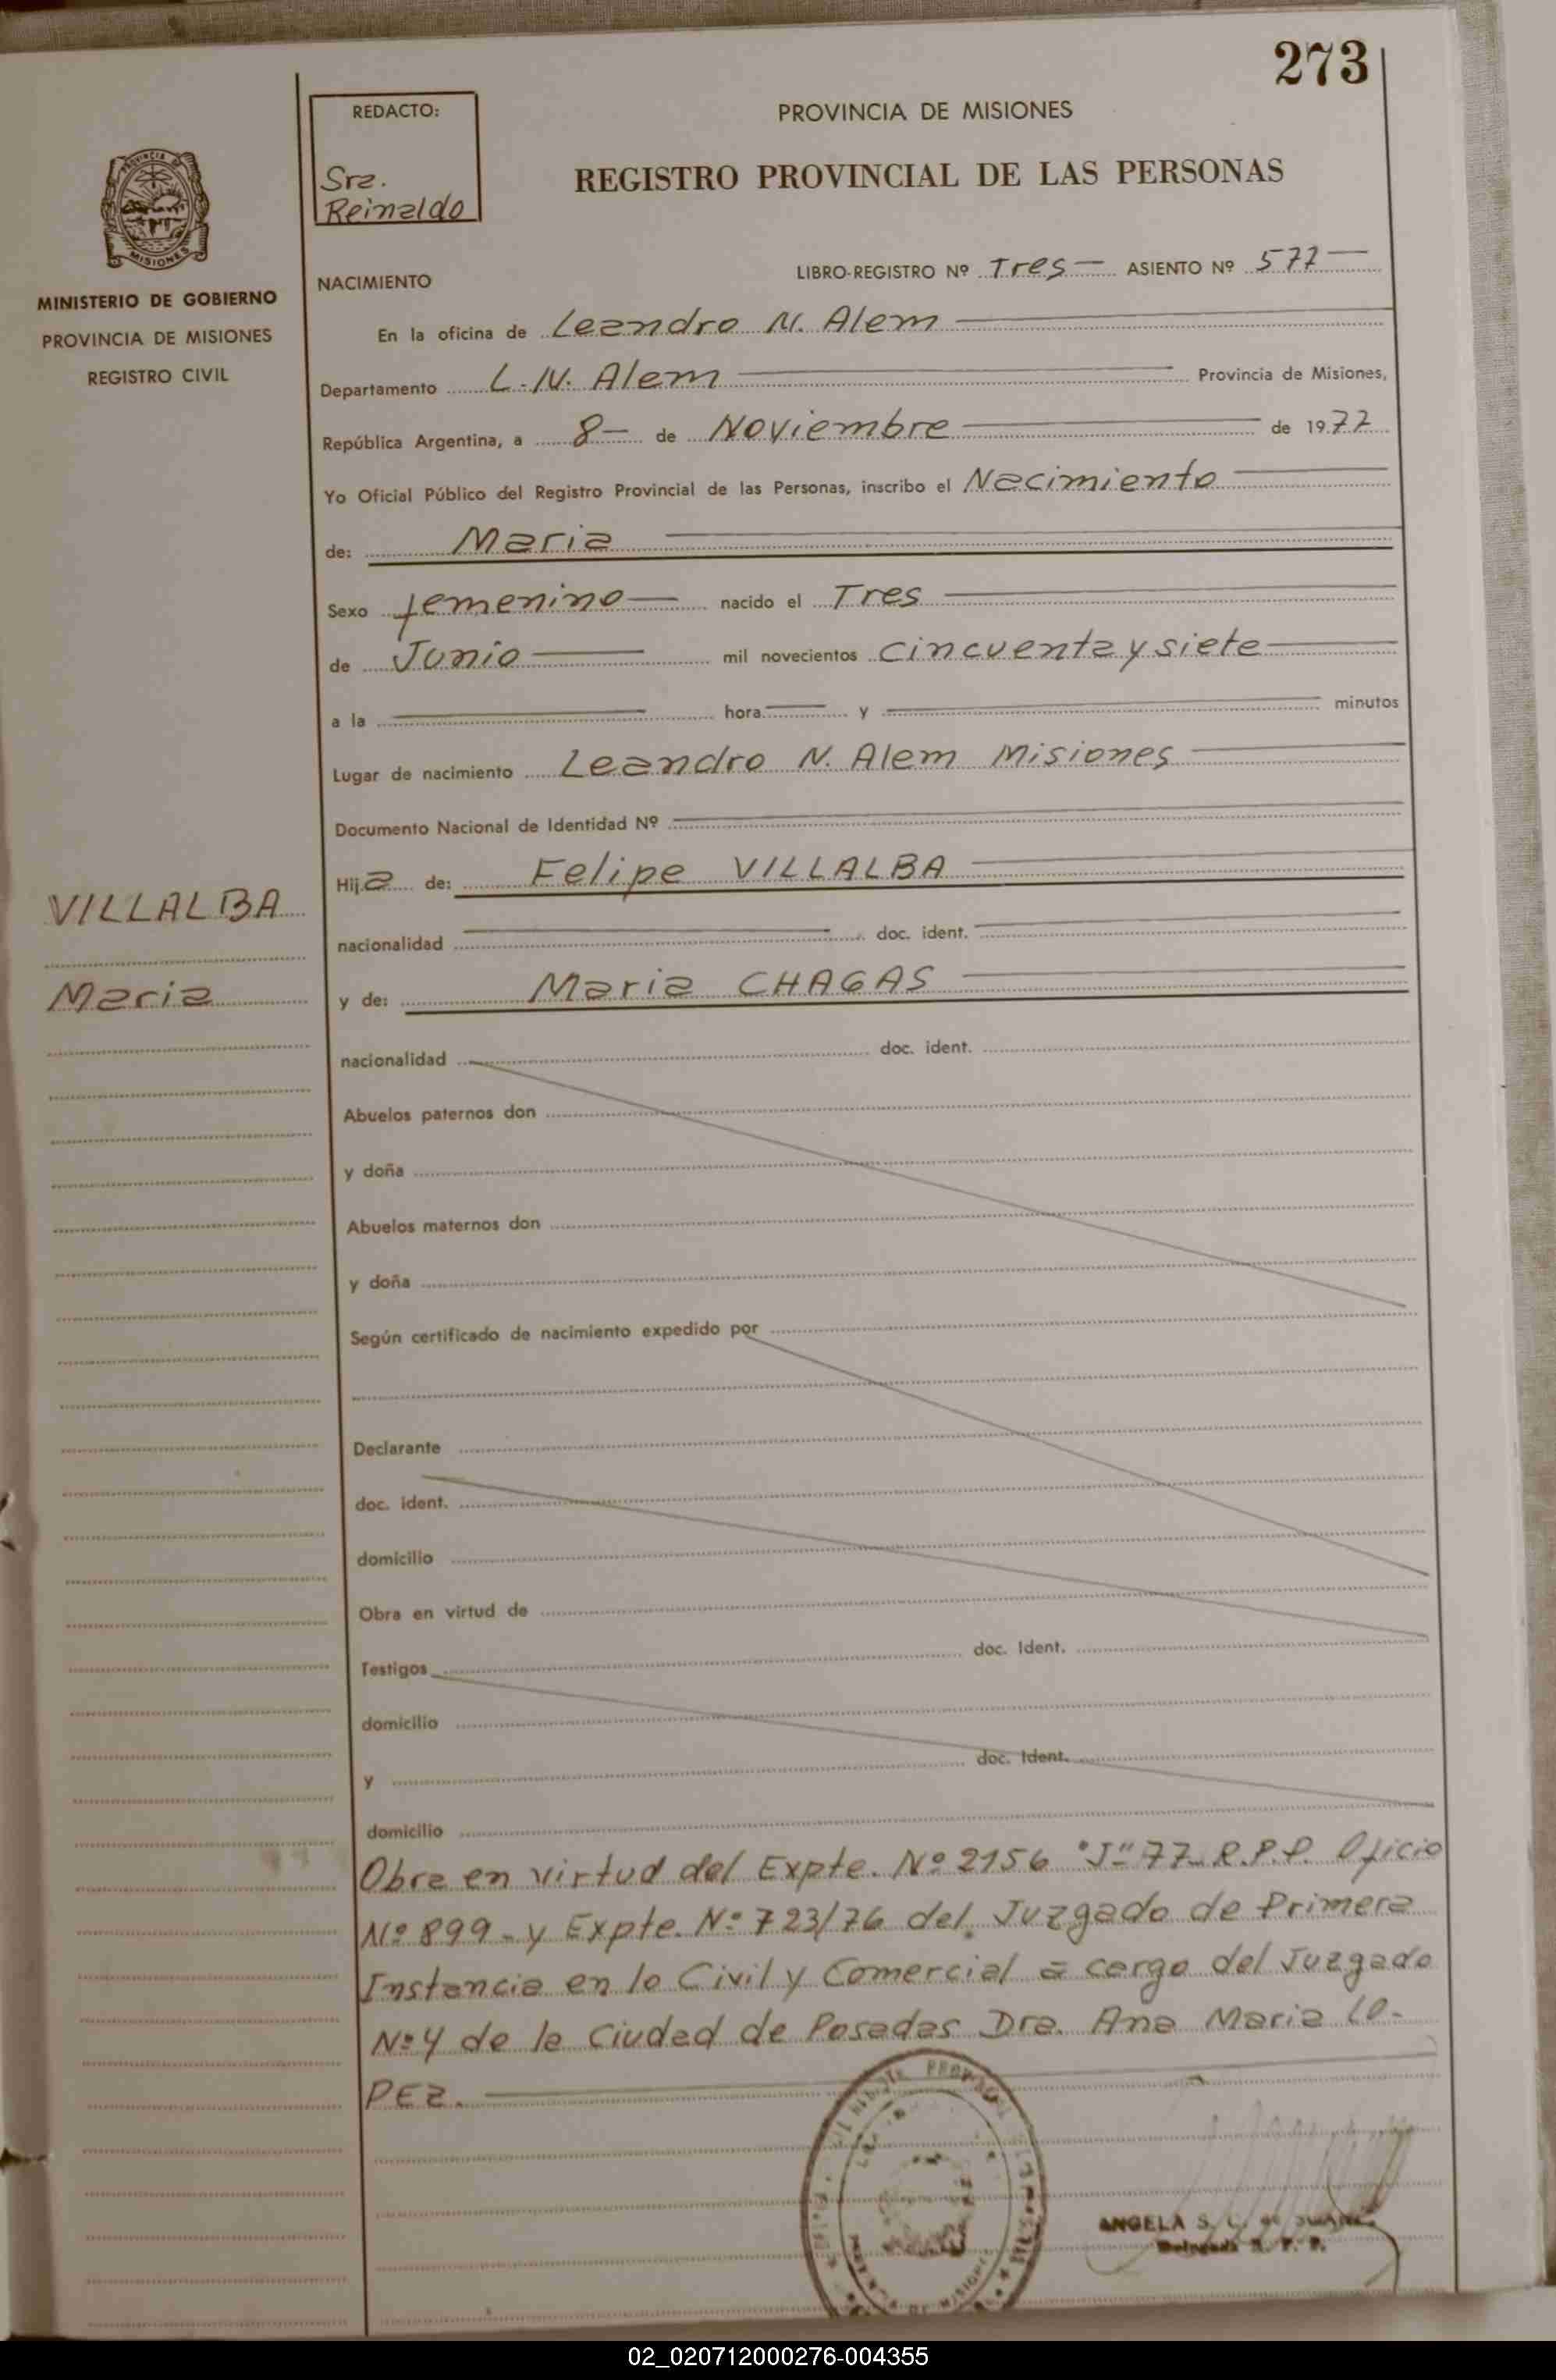 273
REDACTO:
Sra.
Reinaldo
PROVINCIA DE MISIONES
REGISTRO PROVINCIAL DE LAS PERSONAS
PROVINCIA DE
MISIONES
MINISTERIO DE GOBIERNO
PROVINCIA DE MISIONES
REGISTRO CIVIL
NACIMIENTO
LIBRO-REGISTRO Nº Tres — ASIENTO Nº 577 —
En la oficina de Leandro N. Alem
Departamento L. N. Alem Provincia de Misiones,
República Argentina, a 8 — de Noviembre de 1977
Yo Oficial Público del Registro Provincial de las Personas, inscribo el Nacimiento
de: Maria
Sexo femenino — nacido el Tres
de Junio — mil novecientos cincuenta y siete
a la hora y minutos
Lugar de nacimiento Leandro N. Alem Misiones
Documento Nacional de Identidad Nº
Hija de: Felipe VILLALBA
VILLALBA
nacionalidad doc. ident.
Maria
y de: Maria CHAGAS
nacionalidad doc. ident.
Abuelos paternos don
y doña
Abuelos maternos don
y doña
Según certificado de nacimiento expedido por
Declarante
doc. ident.
domicilio
Obra en virtud de
Testigos doc. Ident.
domicilio
y doc. Ident.
domicilio
Obra en virtud del Expte. Nº 2156 "J" 77 R.P.P. Oficio
Nº 899 - y Expte. Nº 723/76 del Juzgado de Primera
Instancia en lo Civil y Comercial a cargo del Juzgado
Nº 4 de la Ciudad de Posadas Dra. Ana Maria LO-
PEZ.
ANGELA S.
02_020712000276-004355